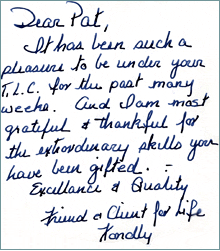 Dear Pat,
It has been such a
pleasure to be under your
T.L.C. for the past many
weeks. And I am most
grateful & thankful for
the extrordinary skills you
have been gifted. -
Excellance & Quality
Friend & Client for Life